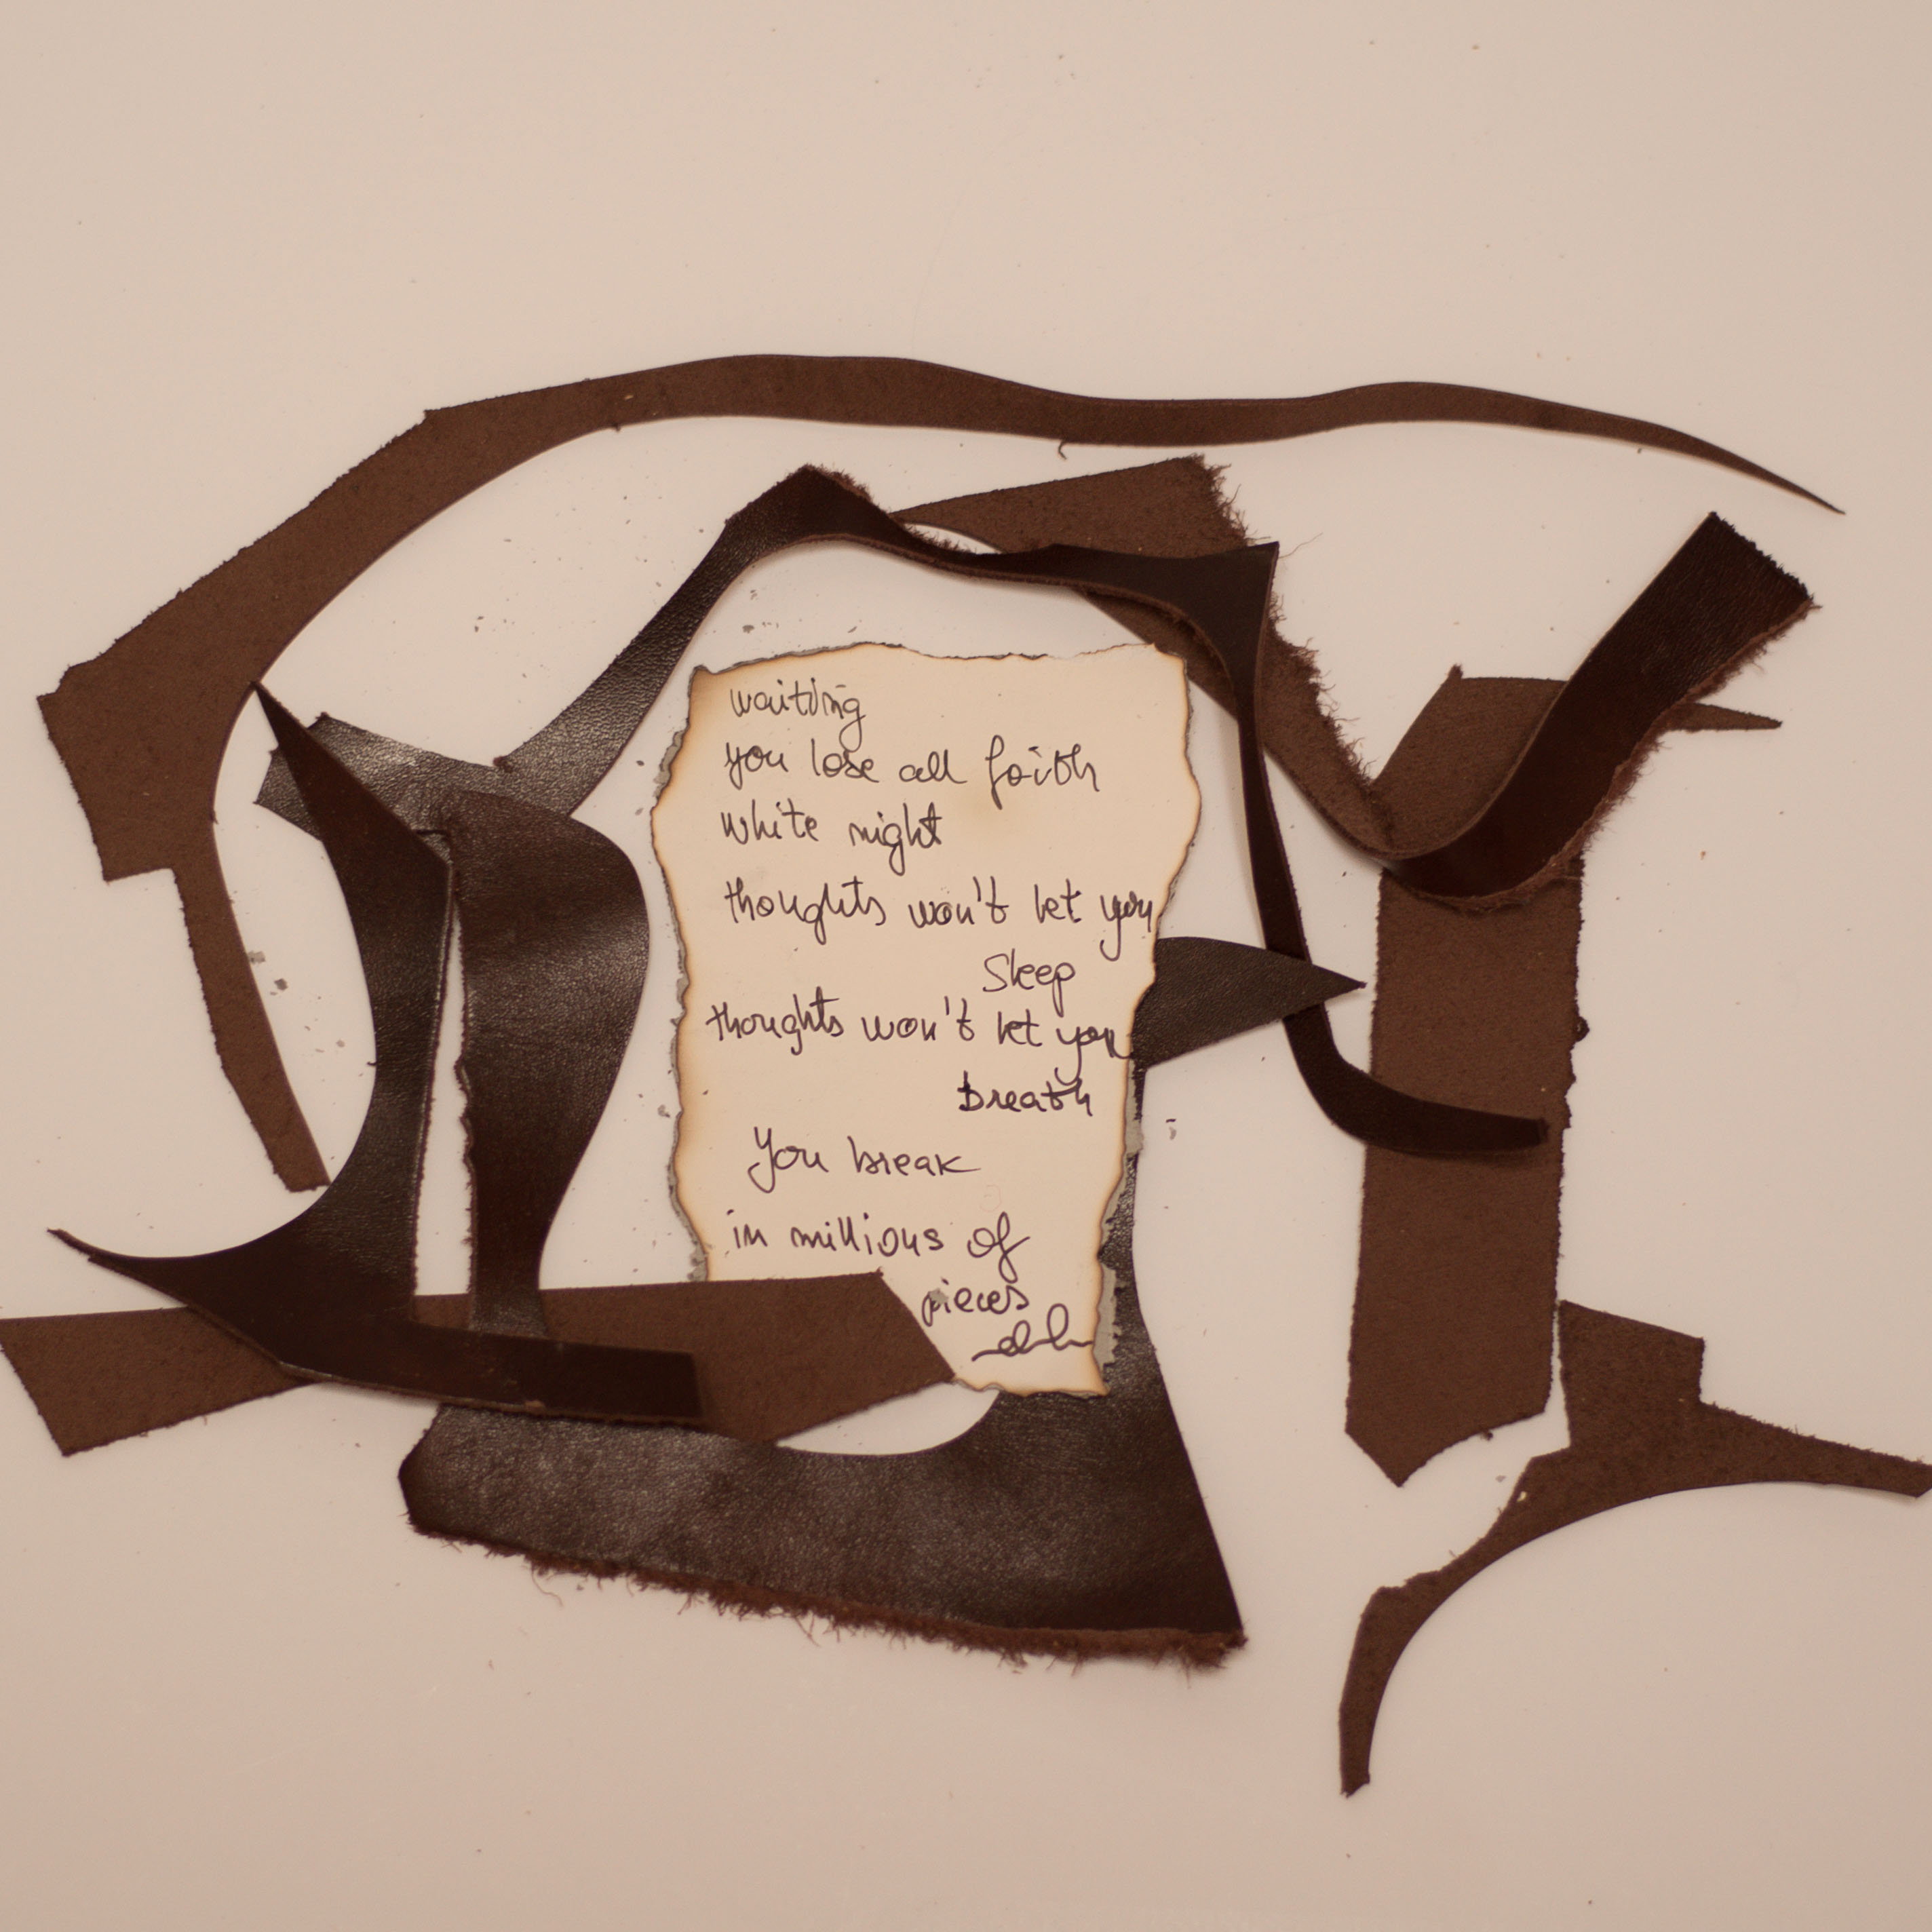 waiting
you lose all faith
white night
thoughts won't let you
Sleep
thoughts won't let you
breath
You break
in millions of
pieces